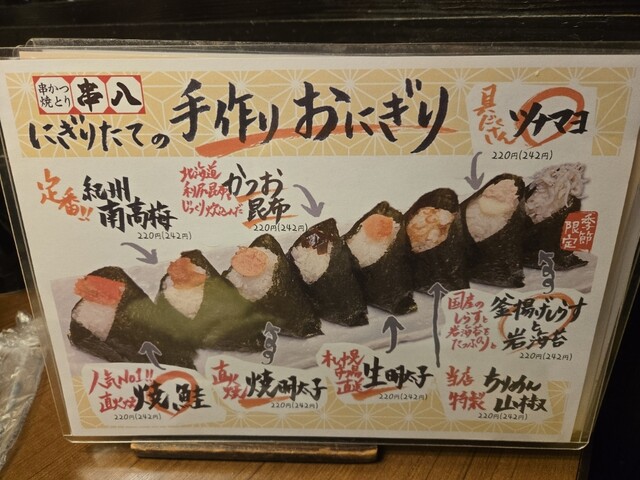 串かつ
焼とり
串八
にぎりたての手作りおにぎり
具だくさん
ツナマヨ
220円(242円)
定番!!
紀州
南高梅
220円(242円)
北海道
利尻昆布
じっくり炊込んだ
かつお
昆布
220円(242円)
季節
限定
国産の
しらすと
岩海苔を
たっぷりと
釜揚げしらす
と
岩海苔
220円(242円)
人気No1!!
直火
焼鮭
220円(242円)
直火
焼明太子
220円(242円)
直送
生明太子
220円(242円)
当店
特製
ちりめん
山椒
220円(242円)